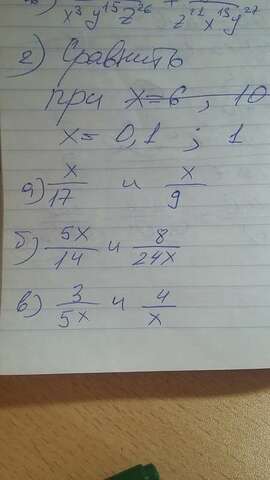 x³ y¹⁵ z²⁶ + z²¹ x¹³ y²⁷
2) Сравнить
при x=6 , 10
x= 0,1 ; 1
а) x/17 и x/9
б) 5x/14 и 8/24x
в) 3/5x и 4/x